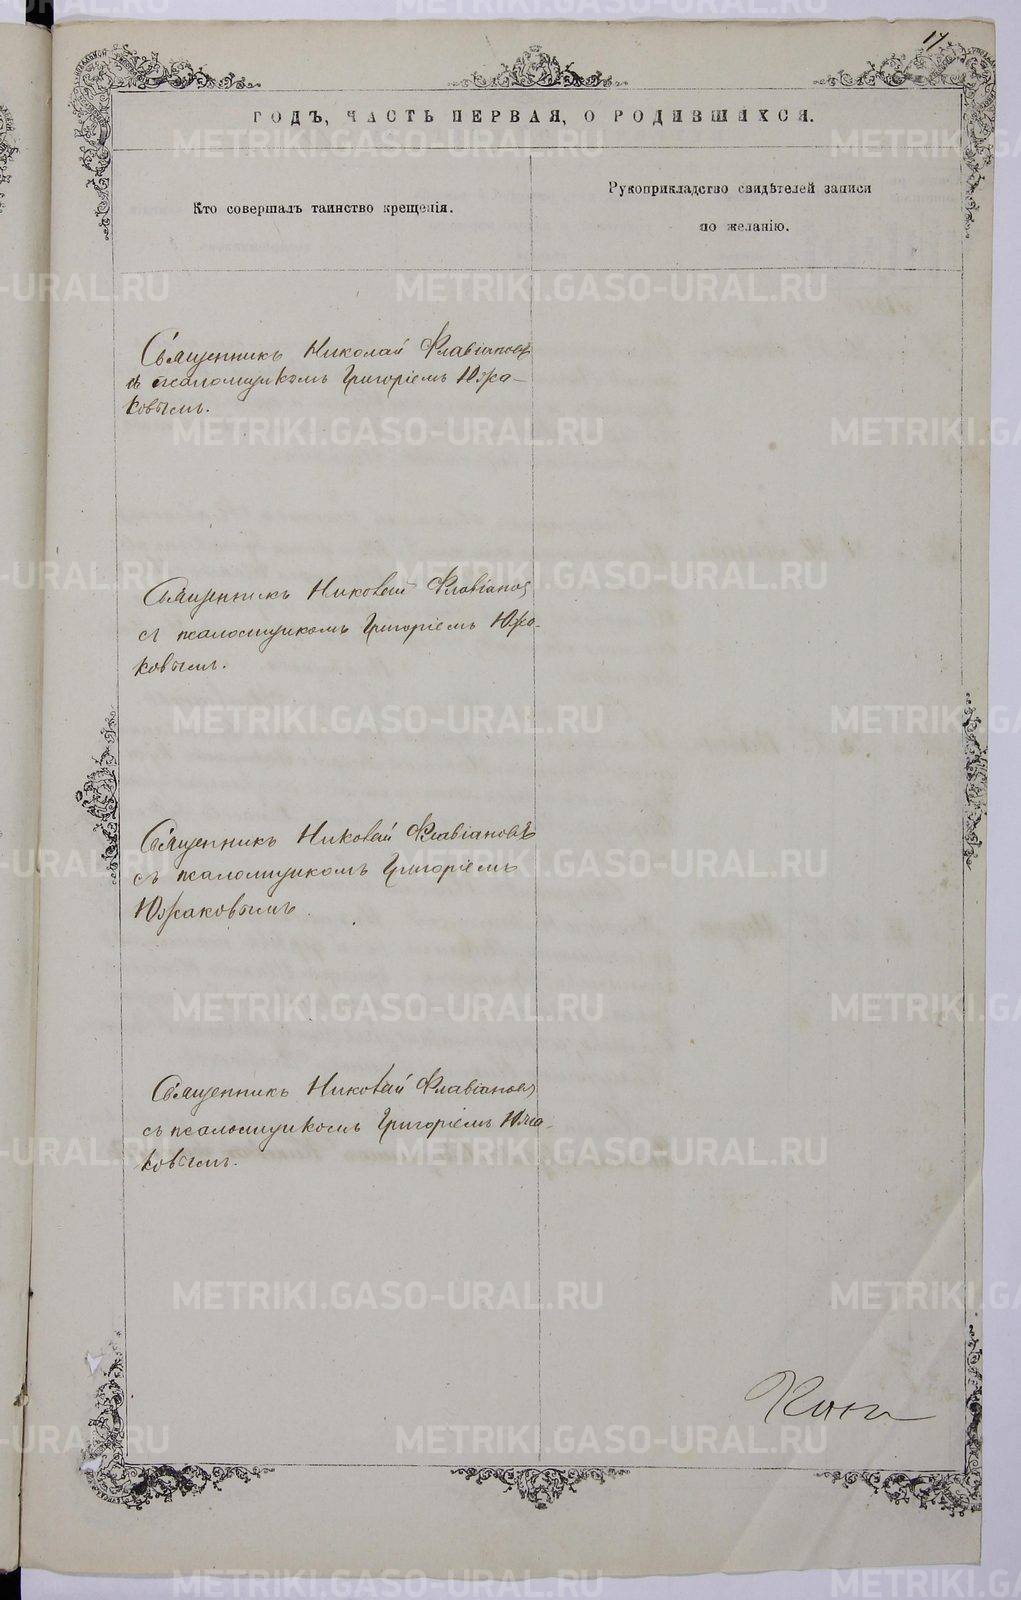 17
ГОДЪ, ЧАСТЬ ПЕРВАЯ, О РОДИВШИХСЯ.
Кто совершалъ таинство крещенія.
Рукоприкладство свидѣтелей записи
по желанію.
Священникъ Николай Флавіановъ
съ псаломщикомъ Григоріемъ Южа-
ковымъ.
Священникъ Николай Флавіановъ
съ псаломщикомъ Григоріемъ Южа-
ковымъ.
Священникъ Николай Флавіановъ
съ псаломщикомъ Григоріемъ
Южаковымъ.
Священникъ Николай Флавіановъ
съ псаломщикомъ Григоріемъ Южа-
ковымъ.
METRIKI.GASO-URAL.RU